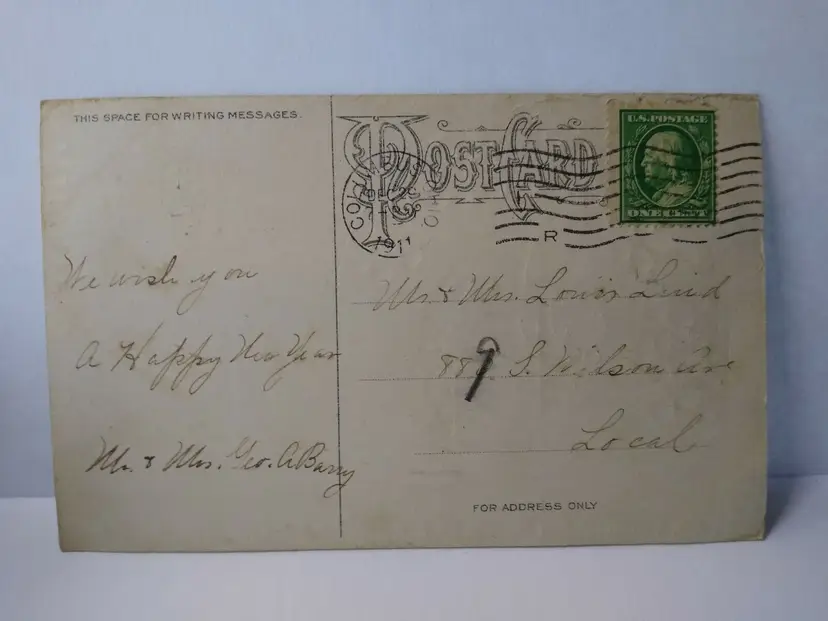 THIS SPACE FOR WRITING MESSAGES.
POST CARD
COLUMBUS
DEC
1911
U.S. POSTAGE
ONE CENT
R
We wish you
A Happy New Year
Mr. & Mrs. Geo. A Barry
Mr. & Mrs. Louis Lind
9
S. Wilson Ave
Local
FOR ADDRESS ONLY